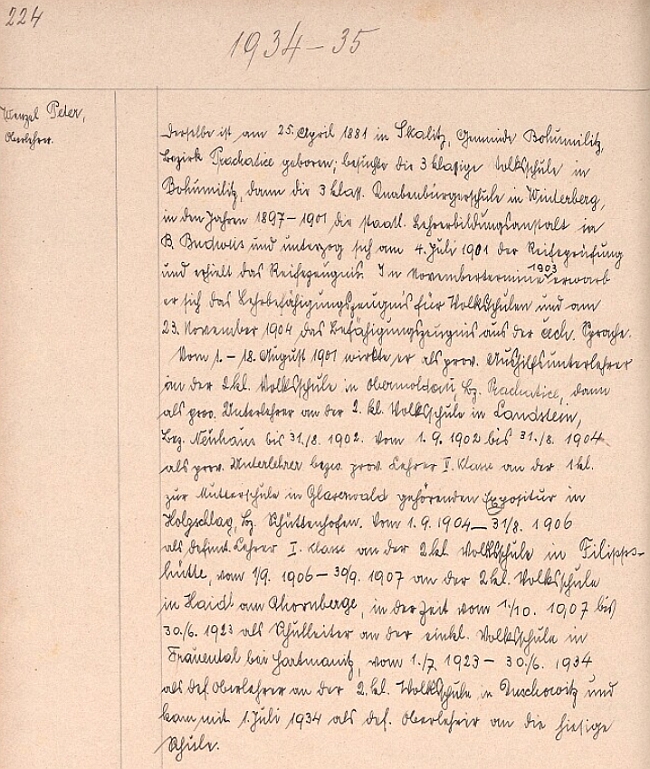 224
1934-35
Wenzel Peter,
Oberlehrer.
Derselbe ist am 25. April 1881 in Skalitz, Gemeinde Bohumilitz,
Bezirk Prachatice geboren; besuchte die 3 klassige Volksschule in
Bohumilitz, dann die 3 klass. Knabenbürgerschule in Winterberg,
in den Jahren 1897-1901 die staatl. Lehrerbildungsanstalt in
B. Budweis und unterzog sich am 4. Juli 1901 der Reifeprüfung
und erhielt das Reifezeugnis. In Novembertermine 1903 erwarb
er sich das Lehrbefähigungszeugnis für Volksschulen und am
23. November 1904 das Befähigungszeugnis aus der čech. Sprache.
Vom 1.- 18. August 1901 wirkte er als prov. Aushilfsunterlehrer
an der 2kl. Volksschule in Obermoldau, Bz. Prachatice, dann
als prov. Unterlehrer an der 2. kl. Volksschule in Landstein,
Bez. Neuhaus bis 31./8. 1902. Vom 1. 9. 1902 bis 31./8. 1904
als prov. Unterlehrer bezw. prov. Lehrer II. Klasse an der 1kl.
zur Mutterschule in Glaserwald gehörenden Expositur in
Holzschlag, Bz. Schüttenhofen. Vom 1. 9. 1904-31/8. 1906
als definit. Lehrer I. Klasse an der 2kl. Volksschule in Filipps-
hütte, vom 1/9. 1906-30/9. 1907 an der 2kl. Volksschule
in Haidl am Ahornberge, in der Zeit vom 1./10. 1907 bis
30./6. 1923 als Schulleiter an der einkl. Volksschule in
Frauental bei Hartmanitz, vom 1./7. 1923 - 30./6. 1934
als def. Oberlehrer an der 2. kl. Volksschule in Duschowitz und
kam mit 1. Juli 1934 als def. Oberlehrer an die hiesige
Schule.